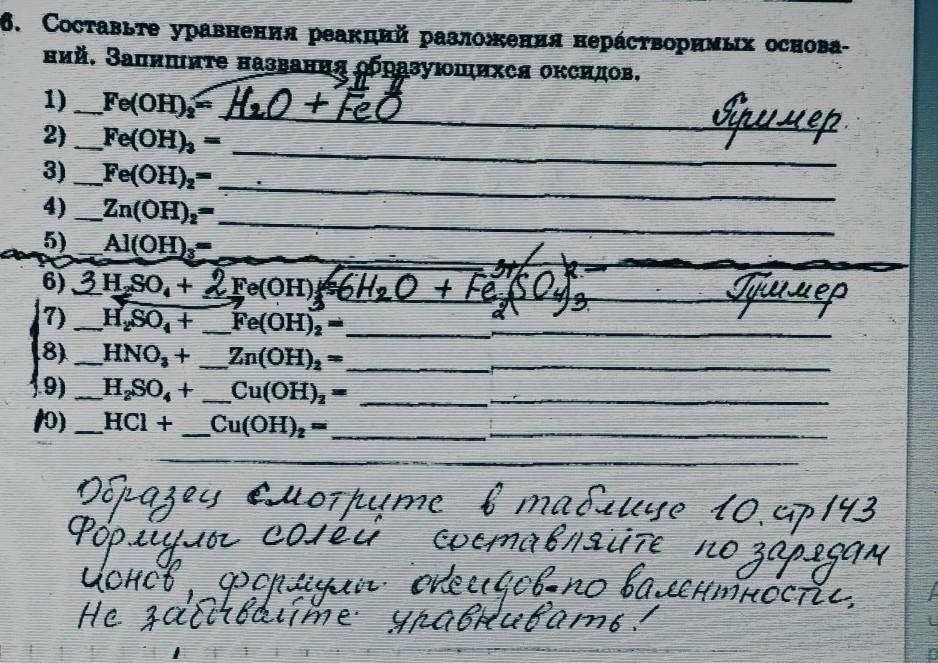 6. Составьте уравнения реакций разложения нерастворимых основа-
ний. Запишите названия образующихся оксидов.
1) __Fe(OH)₂= H₂O + FeO Пример
2) __Fe(OH)₃ = ____
3) __Fe(OH)₂= ____
4) __Zn(OH)₂= ____
5) __Al(OH)₃= ____
6) 3 H₂SO₄ + 2 Fe(OH)₃=6H₂O + Fe₂(SO₄)₃ Пример
7) __H₂SO₄ + __Fe(OH)₂ = ____
8) __HNO₃ + __Zn(OH)₂ = ____
9) __H₂SO₄ + __Cu(OH)₂ = ____
10) __HCl + __Cu(OH)₂ = ____
Образец смотрите в таблице 10. стр 143
Формулы солей составляйте по зарядам
ионов, формулы оксидов-по валентности.
Не забывайте уравнивать!